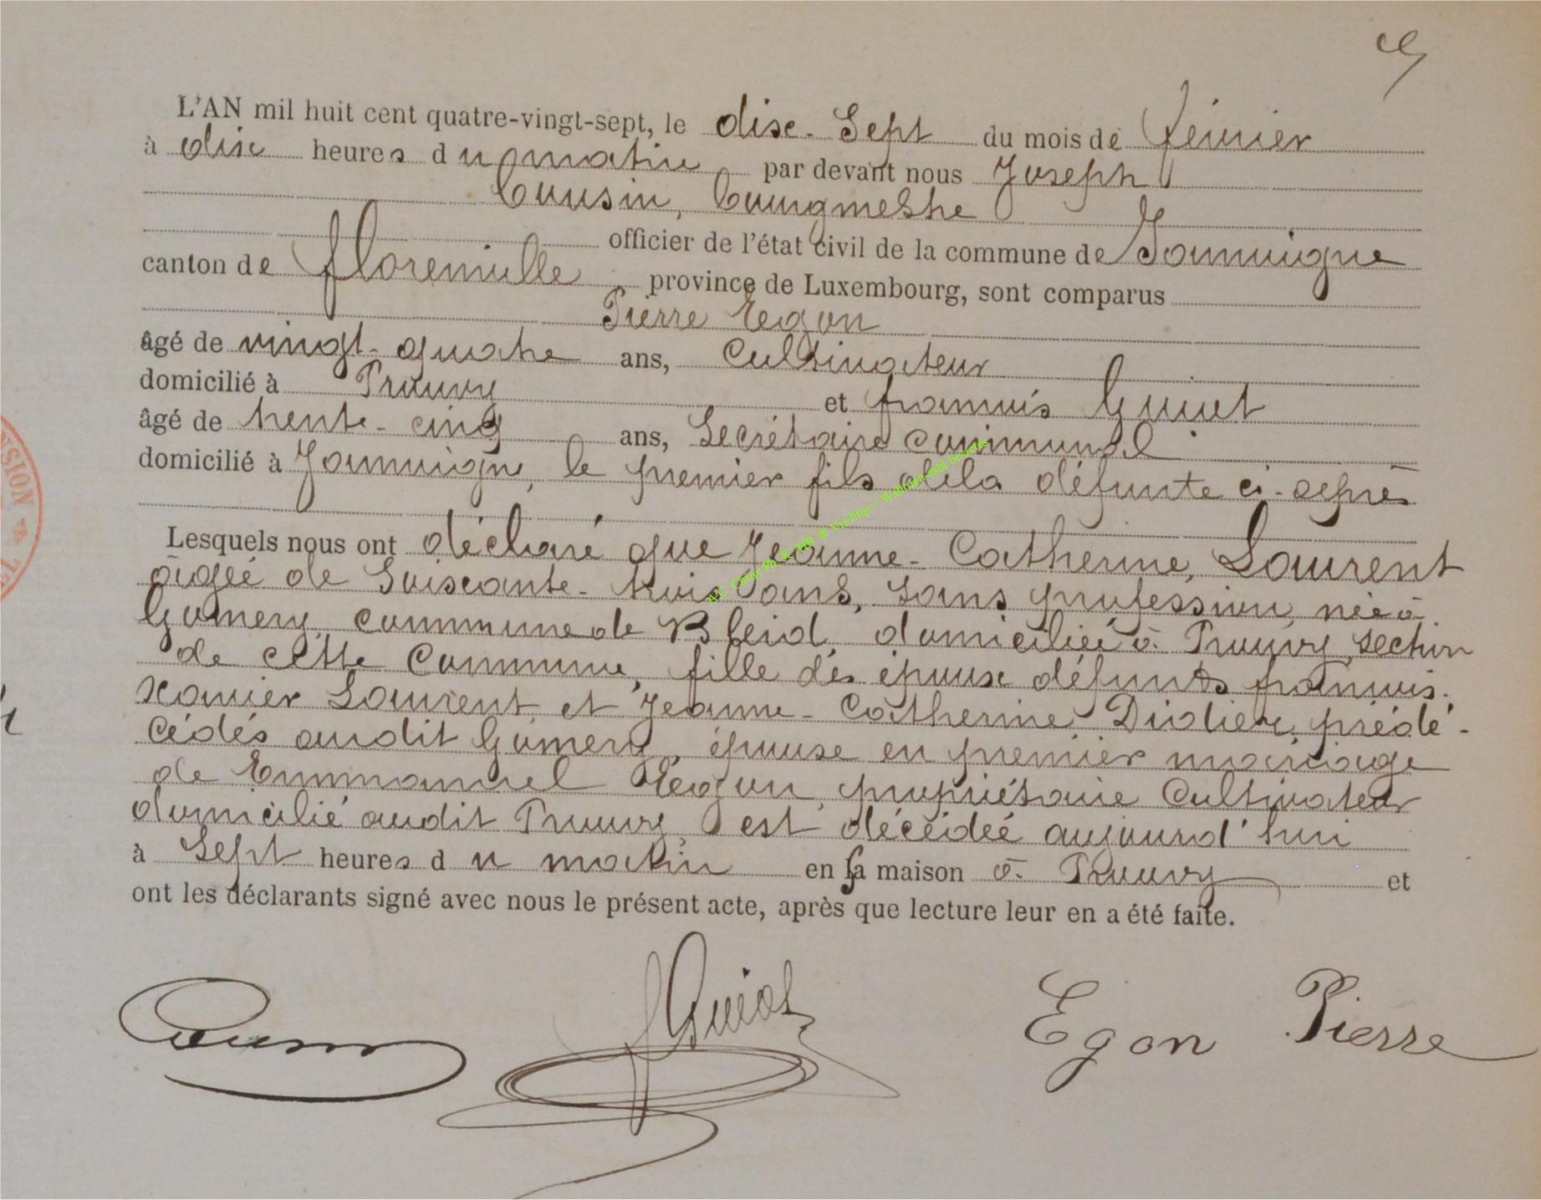 L'AN mil huit cent quatre-vingt-sept, le dix-Sept du mois de février
à dix heures du matin par devant nous Joseph
Cousin, bourgmestre
officier de l'état civil de la commune de Jamoigne
canton de florenville province de Luxembourg, sont comparus
Pierre Egon
âgé de vingt-quatre ans, Cultivateur
domicilié à Prouvy et françois Guiot
âgé de trente-cinq ans, Secrétaire communal
domicilié à Jamoigne, le premier fils de la défunte ci-après
Lesquels nous ont déclaré que Jeanne-Catherine, Laurent
âgée de Soixante-trois ans, sans profession, née à
Gomery, commune de Bleid domiciliée à Prouvy, section
de cette Commune, fille des époux défunts françois-
xavier Laurent et Jeanne-Catherine Didier, prédé-
cédés audit Gomery, épouse en premier mariage
de Emmanuel Egon, propriétaire Cultivateur
domicilié audit Prouvy, est décédée aujourd'hui
à Sept heures du matin en sa maison à Prouvy et
ont les déclarants signé avec nous le présent acte, après que lecture leur en a été faite.
Cousin
f Guiot
Egon Pierre